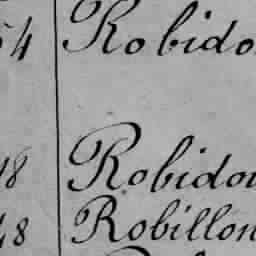 54 Robido
18 Robidou
48 Robillon